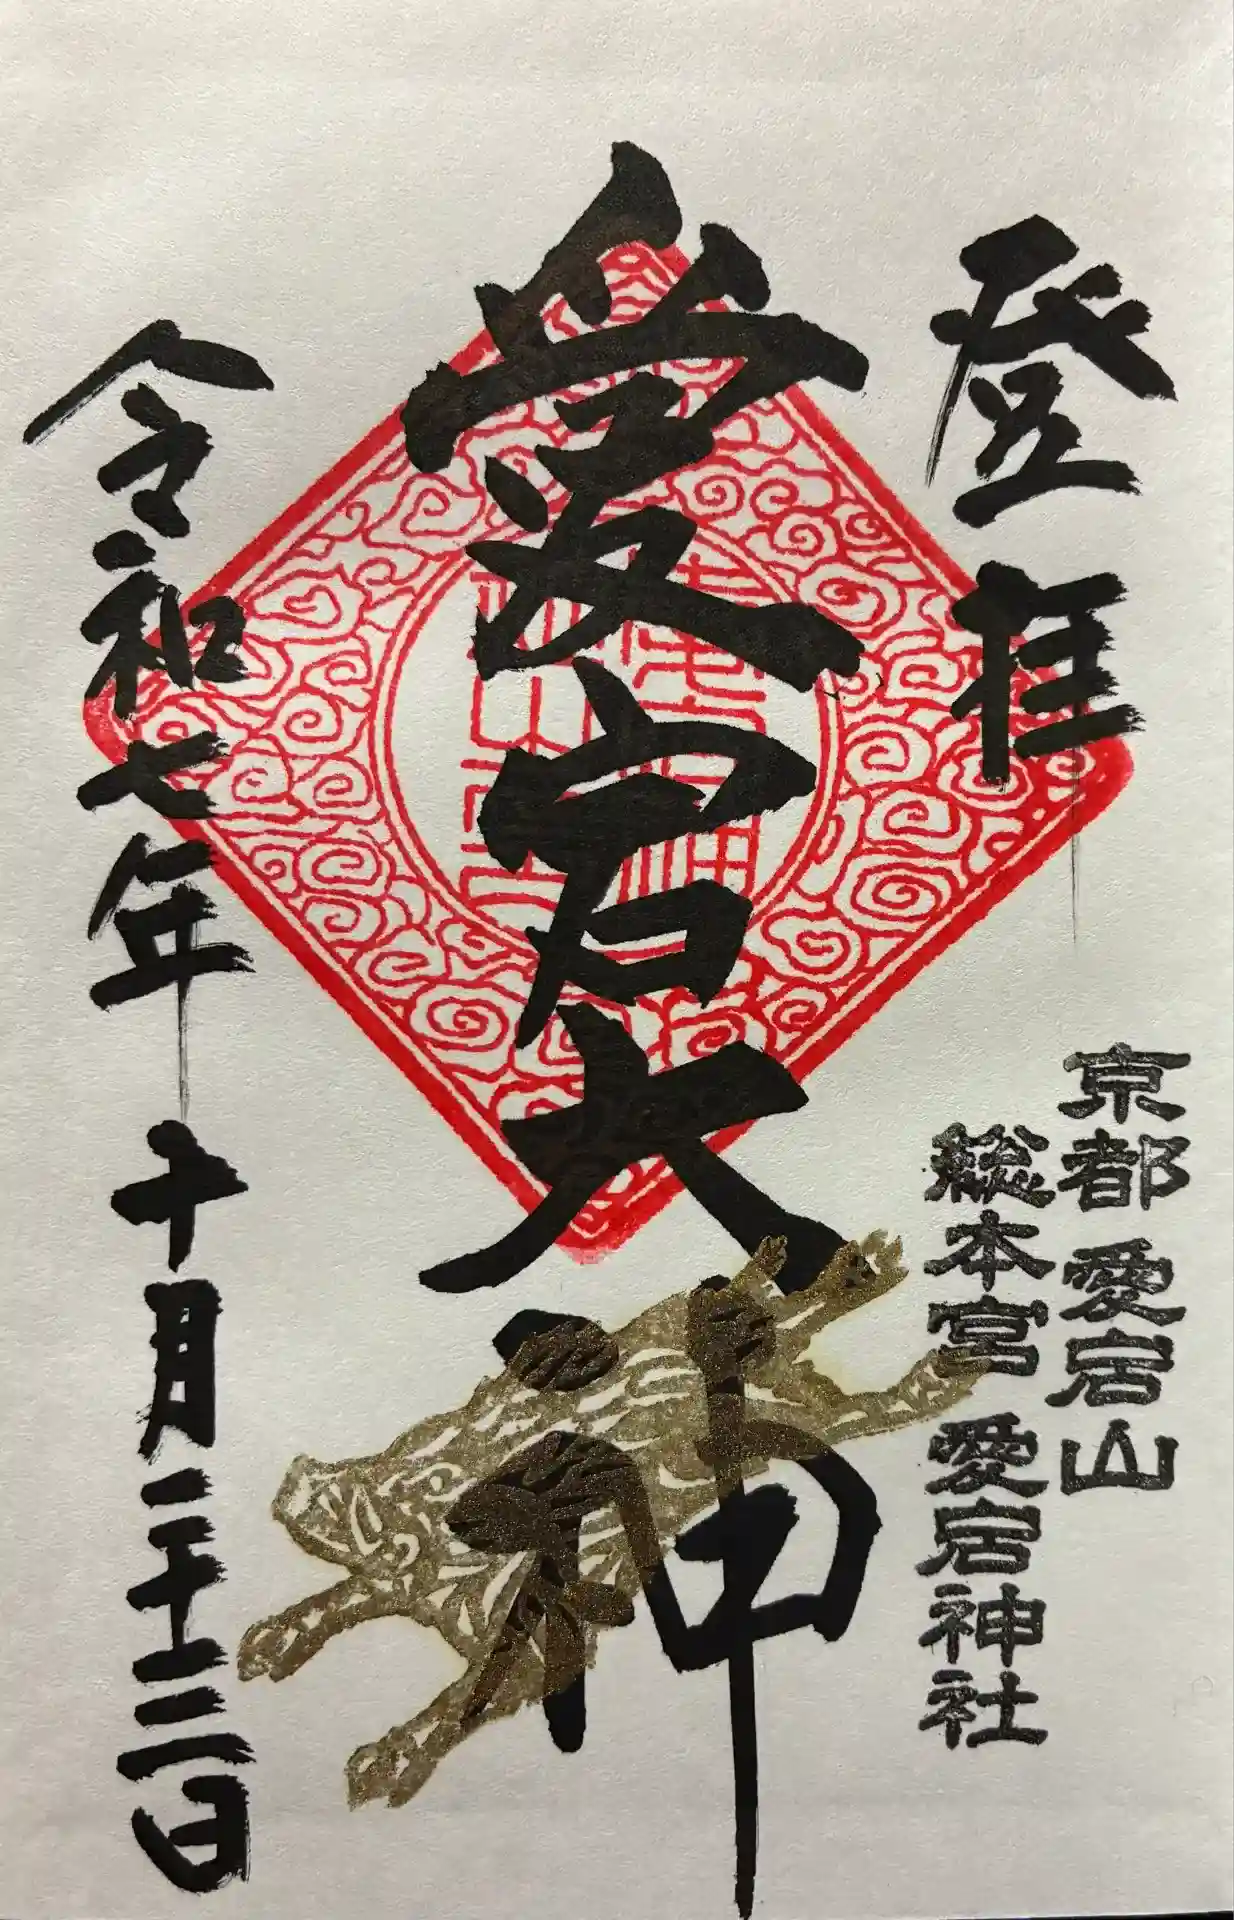 登拝
京都 愛宕山
総本宮 愛宕神社
愛宕大神
令和七年十月二十三日